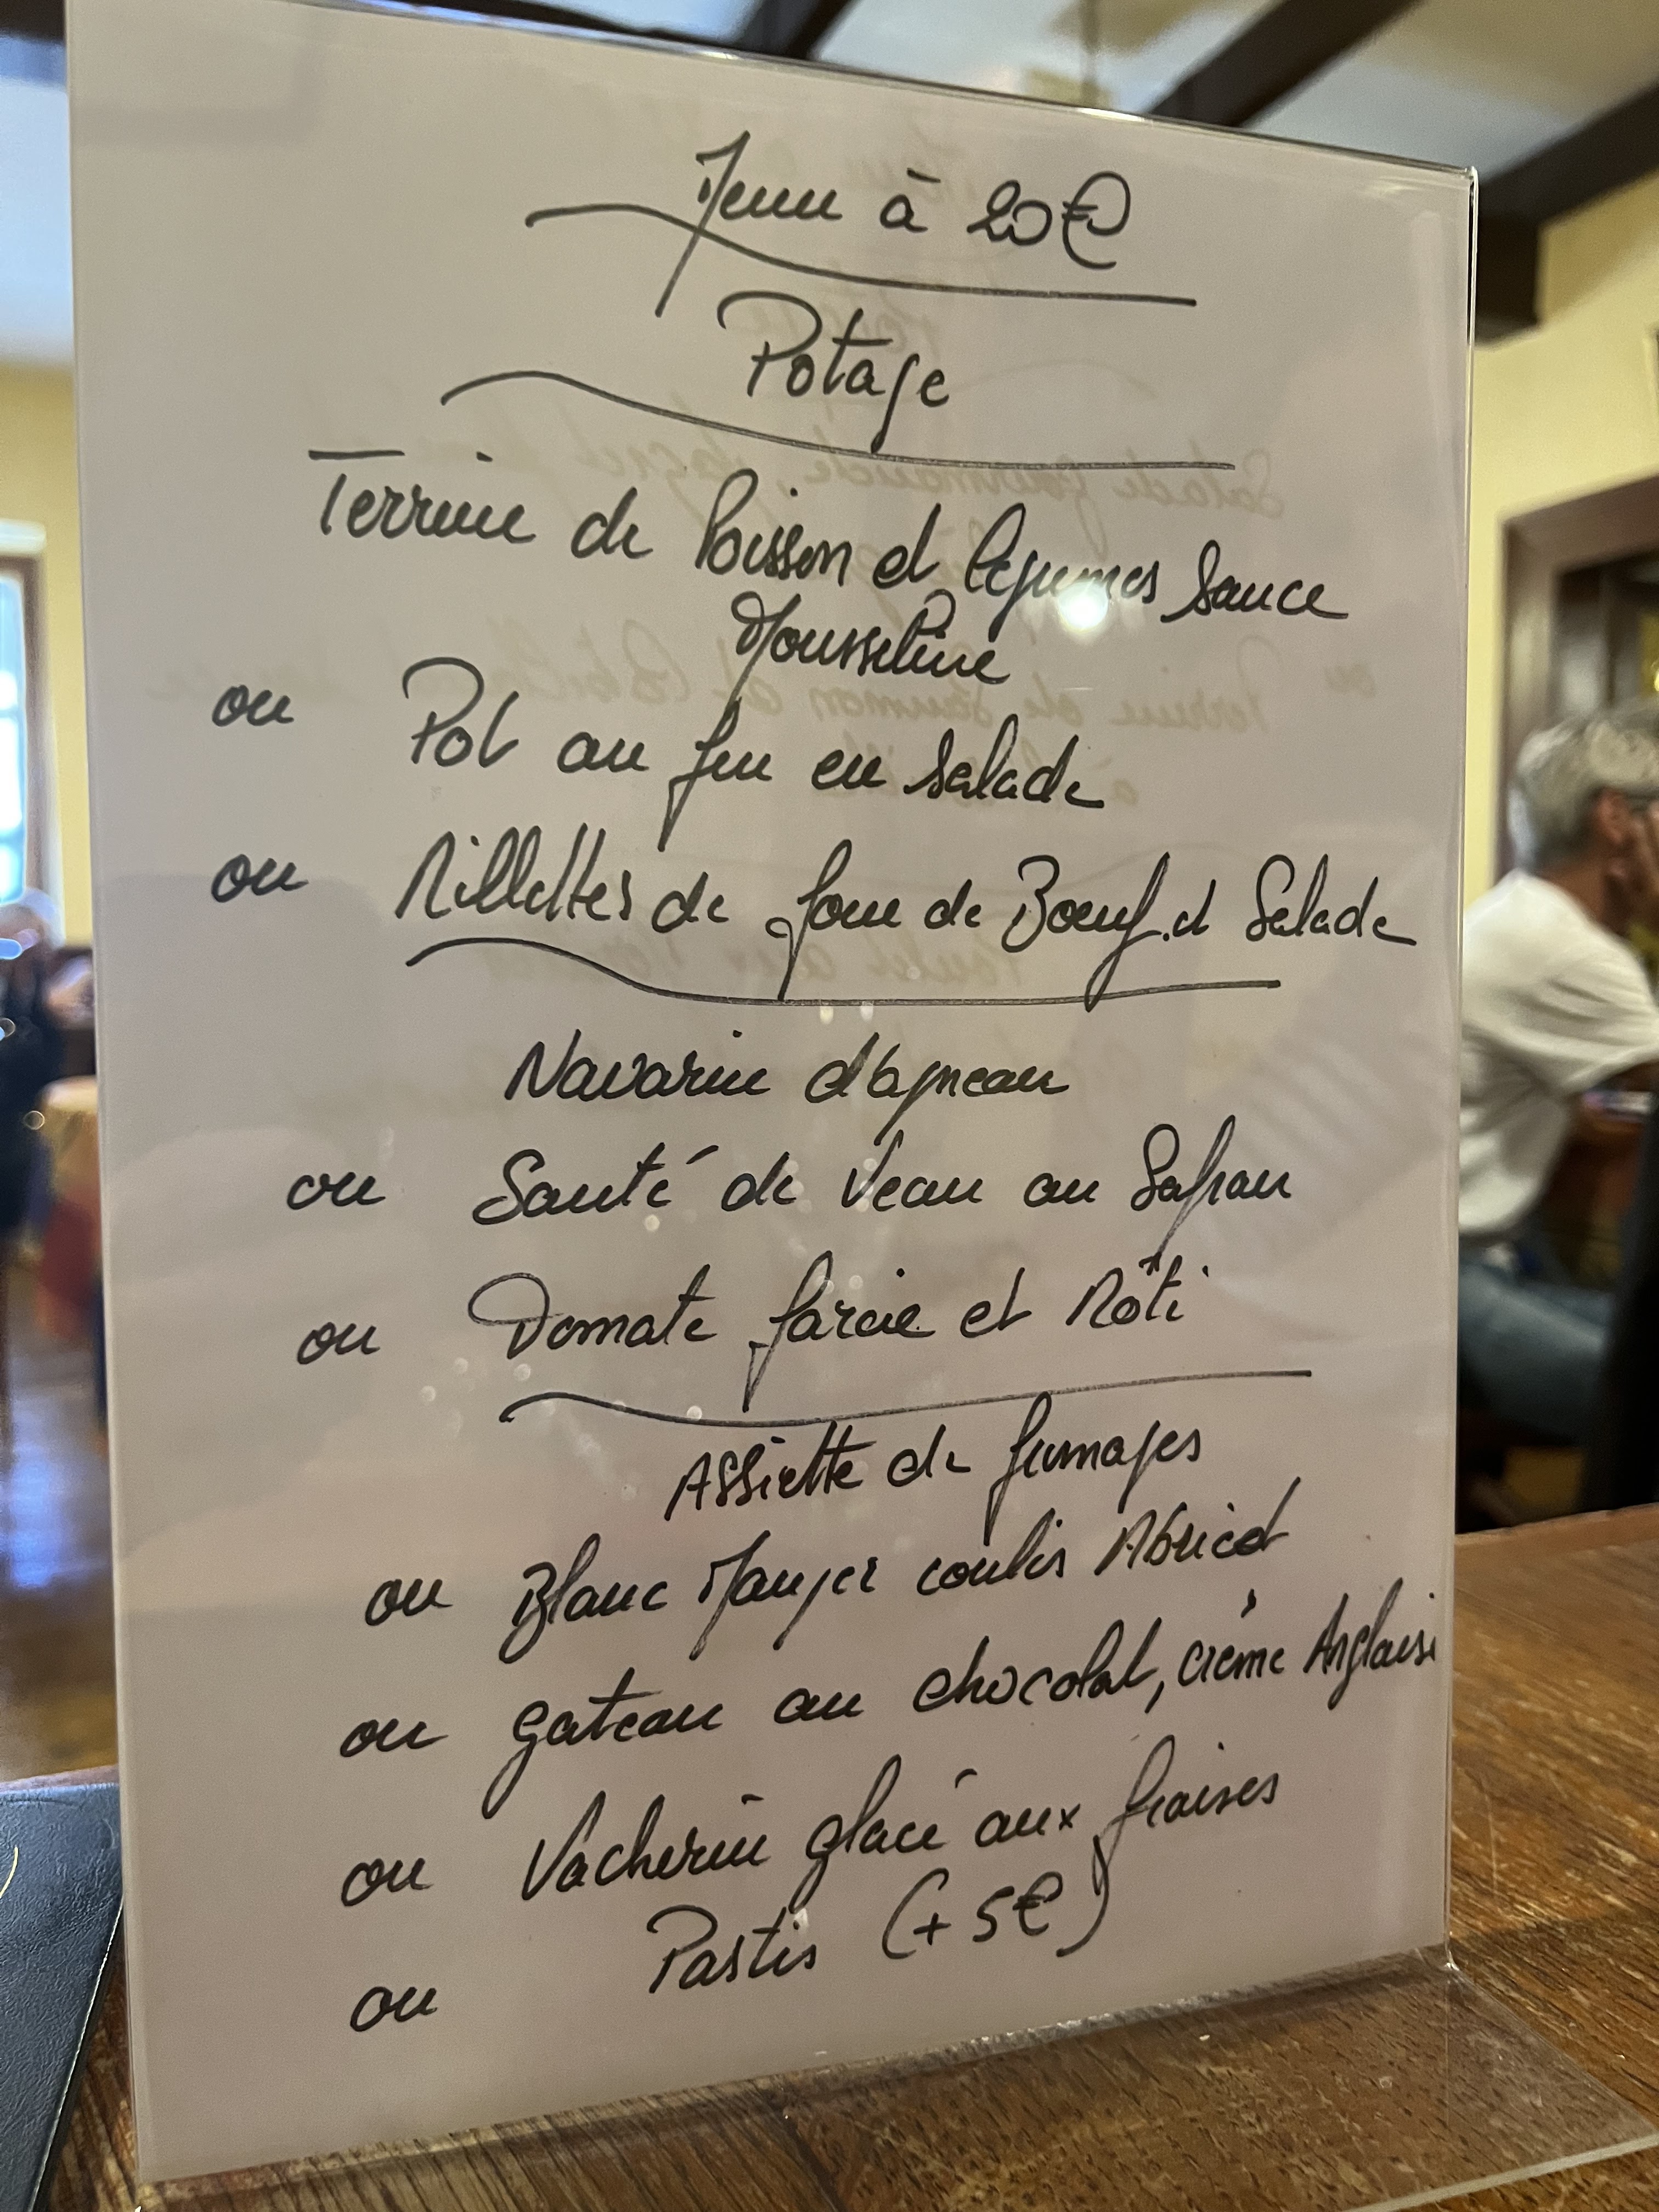 Menu à 20€
Potage
Terrine de Poisson et légumes Sauce
Mousseline
ou Pot au feu en Salade
ou Rillettes de Joue de Boeuf et Salade
Navarin d'agneau
ou Sauté de Veau au Safran
ou Tomate farcie et Rôti
Assiette de fromages
ou Blanc Manger coulis Abricot
ou gateau au chocolat, crème Anglaise
ou Vacherin glacé aux fraises
ou Pastis (+ 5€)